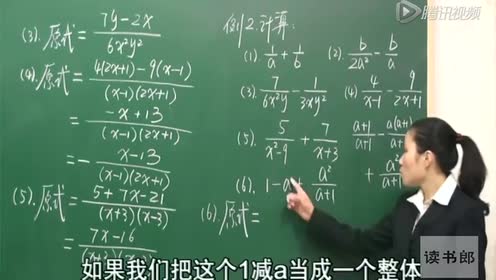 腾讯视频
(3). 原式 = (7y-2x)/(6x²y²)
(4). 原式 = (4(2x+1)-9(x-1))/((x-1)(2x+1))
= (-x+13)/((x-1)(2x+1))
= -(x-13)/((x-1)(2x+1))
(5). 原式 = (5+7x-21)/((x+3)(x-3))
= (7x-16)/((x+3)(x
例2. 计算:
(1). 1/a + 1/b (2). b/(2a²) - b/a
(3). 7/(6x²y) - 1/(3xy²) (4) 4/(x-1) - 9/(2x+1)
(5). 5/(x²-9) + 7/(x+3)
(6). 1-a + a²/(a+1)
(a+1)/(a+1) - a(a+1)/
+ a²/(a+1)
(6). 原式 =
读书郎
如果我们把这个1减a当成一个整体